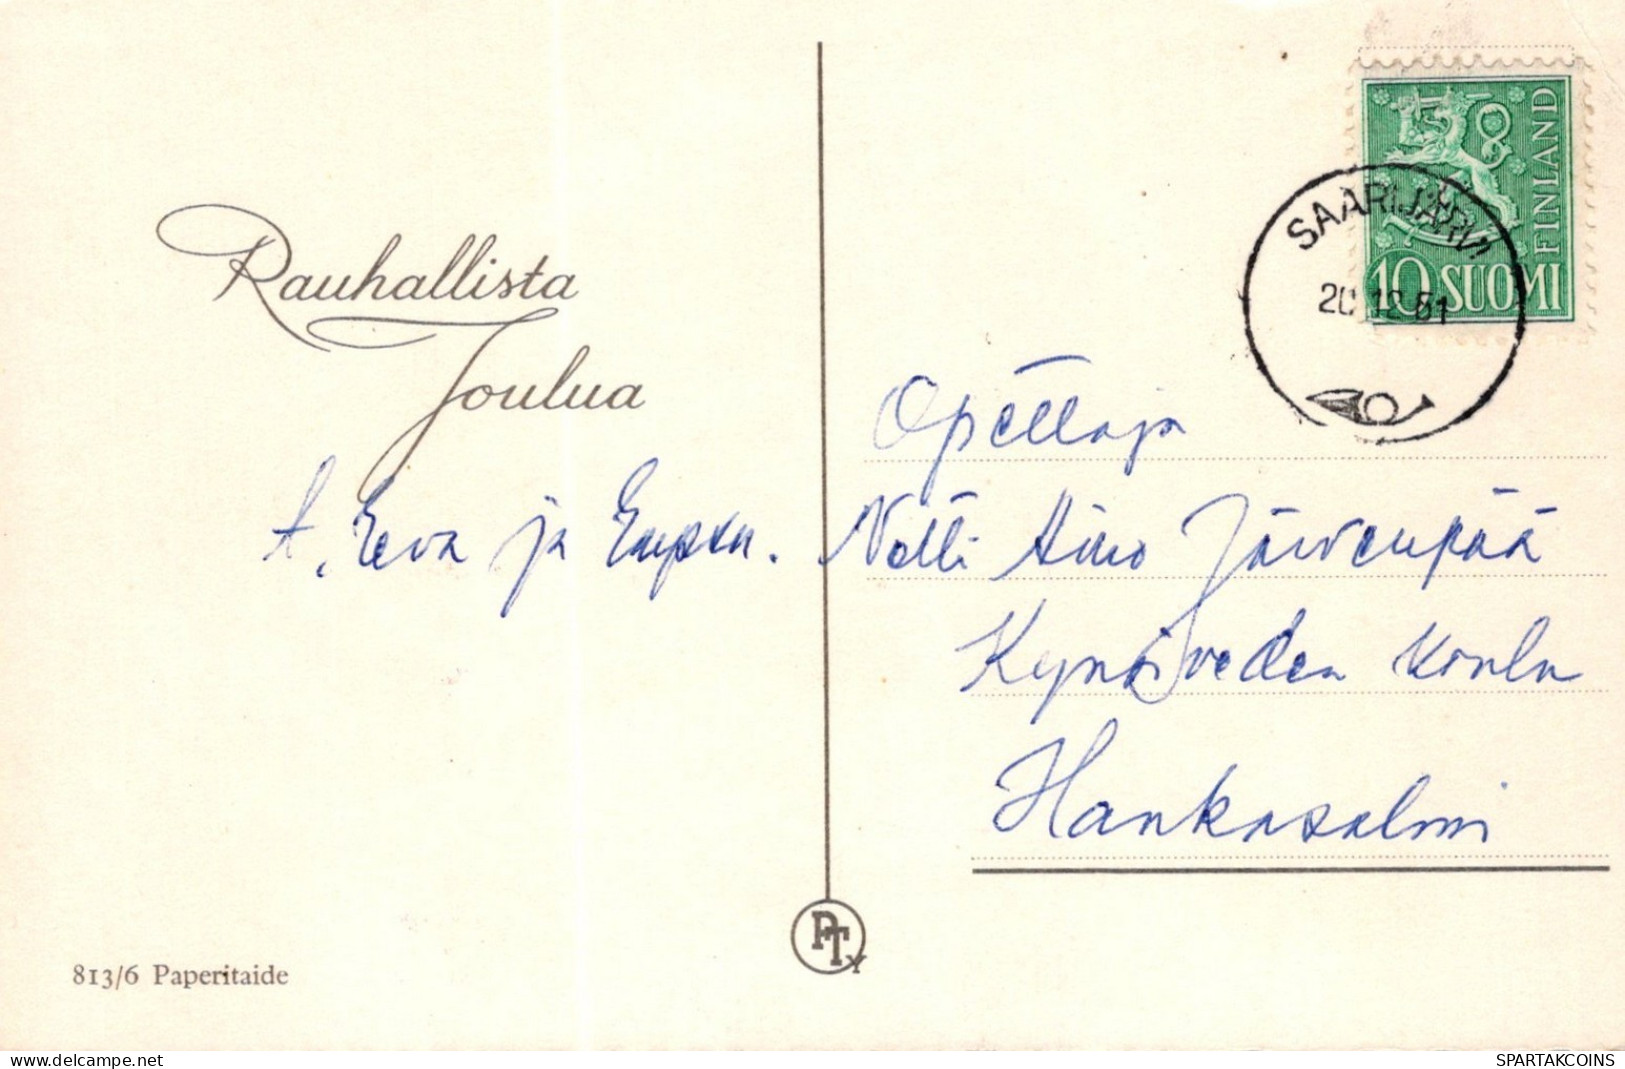 Rauhallista
Joulua
t. Eeva ja
813/6 Paperitaide
PTy
FINLAND
10 SUOMI
SAARIJÄRVI
20.12.61
Opettaja
Aino Järvenpää
Kynsiveden koulu
Hankasalmi
www.delcampe.net
SPARTAKCOINS